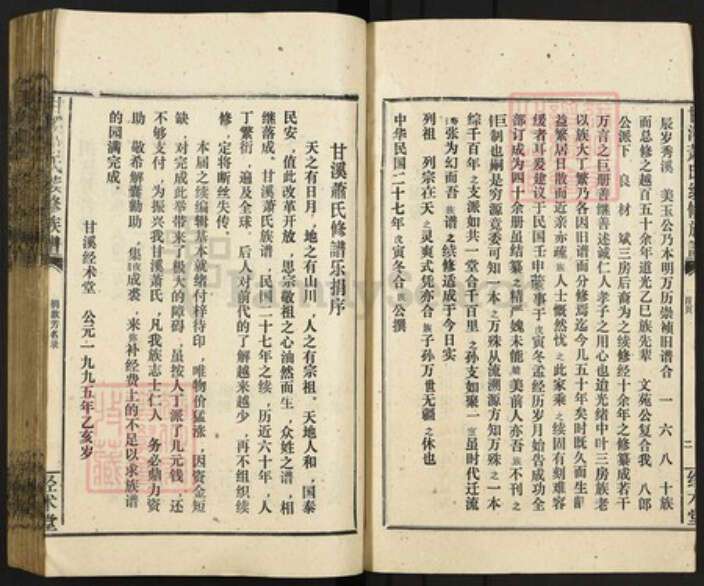 辰岁秀溪 美玉公乃本明万历崇祯旧谱合 一 六 八 十族
而总修之越百五十余年道光乙巳族先辈 文苑公复合我 八郎
公派下 良 材 斌三房后裔为之续修经十余年之修纂成若干
万言之巨册善继善述诚仁人孝子之用心也迨光绪中叶三房族老
以族大丁繁乃各因旧谱而分修焉迄今几五十年矣时既久而生齿
益繁居日散而近亲亦疏族人士慨然忧之此家乘之续固有刻难容
缓者耳爰建议于民国壬申 事于戊寅冬孟经历岁月始告成功全
部订成为四十余册虽结纂之精严媿未能 美前人亦吾族不刊之
巨制也嗣是穷源竟委可知一本之万殊从流溯源方知万殊之一本
综千百年之支派如共一堂合千百里之孙支如聚一室虽时代迁流
张为幻而吾族谱之续修适成于今日实
列祖 列宗在天之灵爽式凭亦合族子孙万世无疆之休也
中华民国二十七年戊寅冬合族公撰
甘溪萧氏修譜乐捐序
天之有日月，地之有山川，人之有宗祖。天地人和，国泰
民安，值此改革开放，思宗敬祖之心油然而生，众姓之谱，相
继落成。甘溪萧氏族谱，民国二十七年之续，历近六十年，人
丁繁衍，遍及全球。后人对前代的了解越来越少，再不组织续
修，定将断丝失传。
本届之续编辑基本就绪付梓待印，唯物价猛涨，因资金短
缺，对完成此举带来了极大的障碍，虽按人丁派了几元钱，还
不够支付，为振兴我甘溪萧氏，凡我族志士仁人，务必鼎力资
助，敬希解囊勷助，集 成裘，来弥补经费上的不足以求族谱
的园满完成。
甘溪经术堂 公元一九九五年乙亥岁
捐款芳名录
经术堂